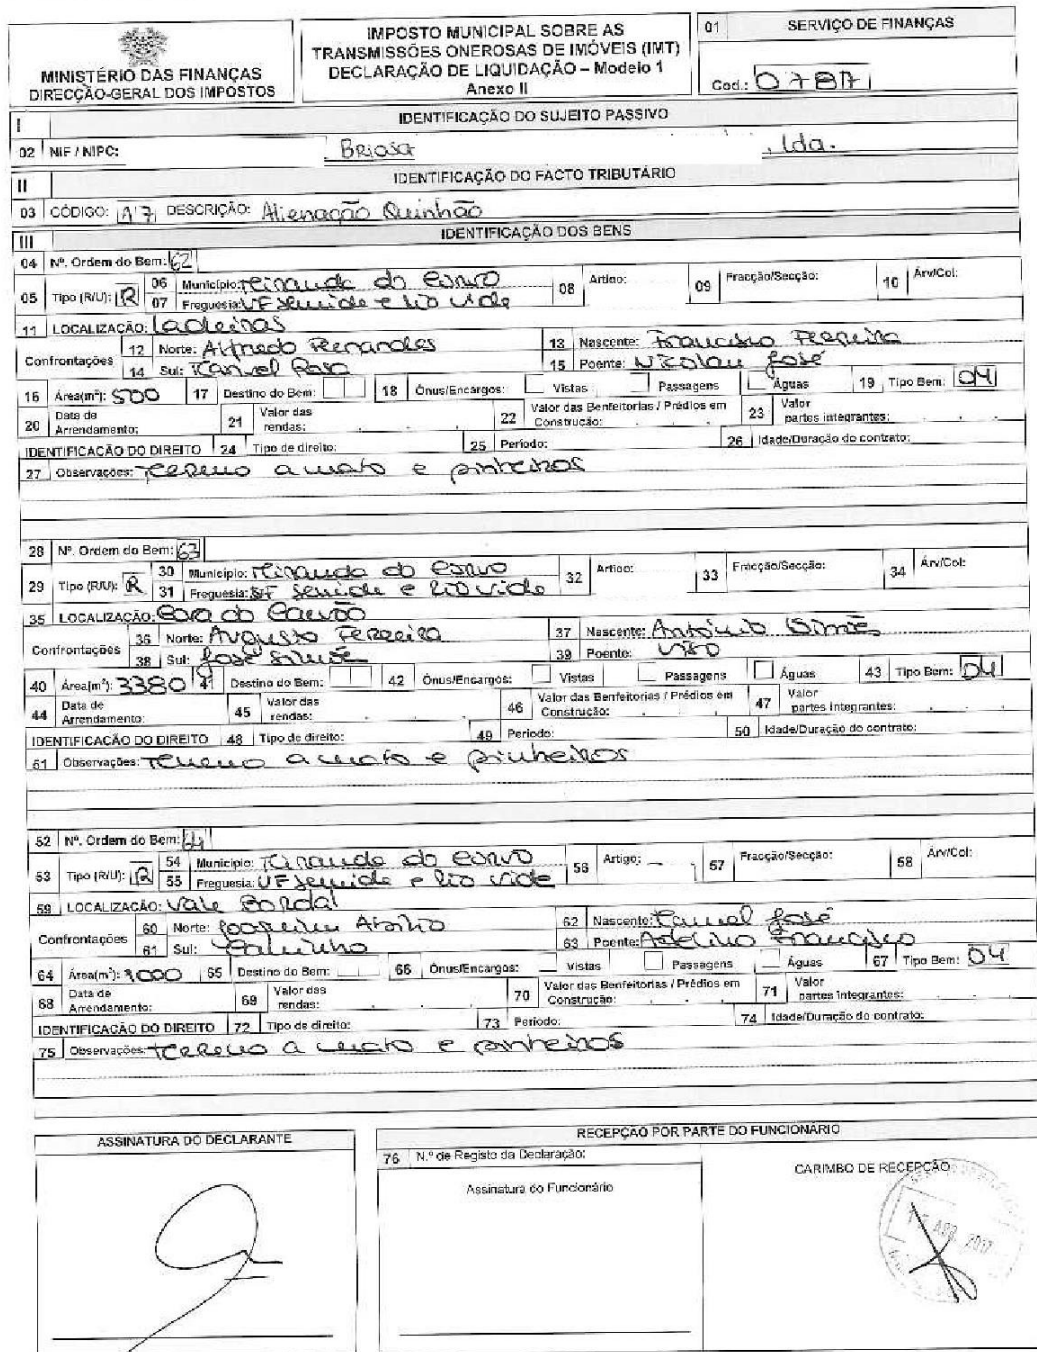 MINISTÉRIO DAS FINANÇAS
DIRECÇÃO-GERAL DOS IMPOSTOS
IMPOSTO MUNICIPAL SOBRE AS
TRANSMISSÕES ONEROSAS DE IMÓVEIS (IMT)
DECLARAÇÃO DE LIQUIDAÇÃO – Modelo 1
Anexo II
01 SERVIÇO DE FINANÇAS
Cod.:
I IDENTIFICAÇÃO DO SUJEITO PASSIVO
02 NIF / NIPC: Briosa , lda.
II IDENTIFICAÇÃO DO FACTO TRIBUTÁRIO
03 CÓDIGO: A7 DESCRIÇÃO: Alienação Quinhão
III IDENTIFICAÇÃO DOS BENS
04 Nº. Ordem do Bem: 62
05 Tipo (R/U): R 06 Município: Miranda do Corvo 08 Artigo: 09 Fracção/Secção: 10 Árv/Col:
07 Freguesia: UF Semide e Rio Vide
11 LOCALIZAÇÃO: Ladeiras
Confrontações 12 Norte: Alfredo Fernandes 13 Nascente: Francisco Ferreira
14 Sul: Manuel Rosa 15 Poente: Nicolau José
16 Área(m²): 500 17 Destino do Bem: 18 Ónus/Encargos: Vistas Passagens Águas 19 Tipo Bem: 04
20 Data de Arrendamento: 21 Valor das rendas: 22 Valor das Benfeitorias / Prédios em Construção: 23 Valor partes integrantes:
IDENTIFICAÇÃO DO DIREITO 24 Tipo de direito: 25 Período: 26 Idade/Duração do contrato:
27 Observações: Terreno a mato e pinheiros
28 Nº. Ordem do Bem: 63
29 Tipo (R/U): R 30 Município: Miranda do Corvo 32 Artigo: 33 Fracção/Secção: 34 Árv/Col:
31 Freguesia: UF Semide e Rio Vide
35 LOCALIZAÇÃO: Cova do
Confrontações 36 Norte: Augusto Ferreira 37 Nascente: António Simões
38 Sul: José 39 Poente: Viso
40 Área(m²): 3380 41 Destino do Bem: 42 Ónus/Encargos: Vistas Passagens Águas 43 Tipo Bem: 04
44 Data de Arrendamento: 45 Valor das rendas: 46 Valor das Benfeitorias / Prédios em Construção: 47 Valor partes integrantes:
IDENTIFICAÇÃO DO DIREITO 48 Tipo de direito: 49 Período: 50 Idade/Duração do contrato:
51 Observações: Terreno a mato e pinheiros
52 Nº. Ordem do Bem: 64
53 Tipo (R/U): R 54 Município: Miranda do Corvo 56 Artigo: 57 Fracção/Secção: 58 Árv/Col:
55 Freguesia: UF Semide e Rio Vide
59 LOCALIZAÇÃO: Vale Bordal
Confrontações 60 Norte: Joaquim 62 Nascente: Manuel José
61 Sul: Caminho 63 Poente: Adelino Francisco
64 Área(m²): 65 Destino do Bem: 66 Ónus/Encargos: Vistas Passagens Águas 67 Tipo Bem: 04
68 Data de Arrendamento: 69 Valor das rendas: 70 Valor das Benfeitorias / Prédios em Construção: 71 Valor partes integrantes:
IDENTIFICAÇÃO DO DIREITO 72 Tipo de direito: 73 Período: 74 Idade/Duração do contrato:
75 Observações: Terreno a mato e pinheiros
ASSINATURA DO DECLARANTE
RECEPÇÃO POR PARTE DO FUNCIONÁRIO
76 N.º de Registo da Declaração:
Assinatura do Funcionário
CARIMBO DE RECEPÇÃO
2017